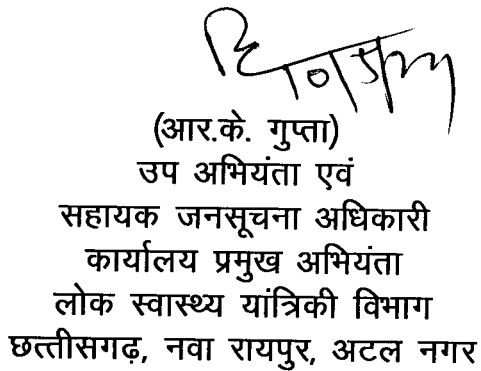 (आर.के. गुप्ता)
उप अभियंता एवं
सहायक जनसूचना अधिकारी
कार्यालय प्रमुख अभियंता
लोक स्वास्थ्य यांत्रिकी विभाग
छत्तीसगढ़, नवा रायपुर, अटल नगर